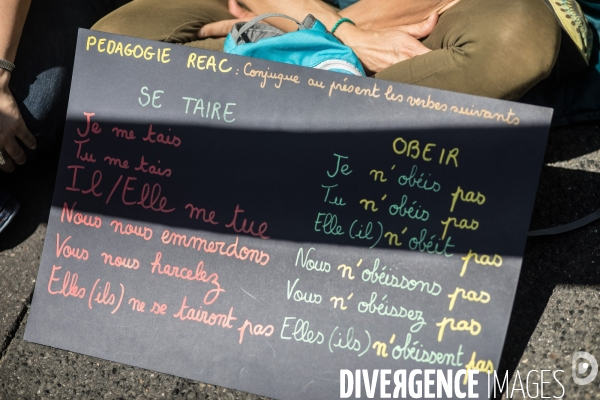 PEDAGOGIE REAC : Conjugue au présent les verbes suivants
SE TAIRE
Je me tais
Tu me tais
Il/Elle me tue
Nous nous emmerdons
Vous nous harcelez
Elles(ils) ne se tairont pas
OBEIR
Je n'obéis pas
Tu n'obéis pas
Elle(il) n'obéit pas
Nous n'obéissons pas
Vous n'obéissez pas
Elles(ils) n'obéissent pas
DIVERGENCE IMAGES